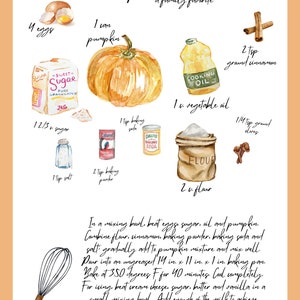 a family favorite
4 eggs
1 can
pumpkin
2 tsp
ground cinnamon
SWEET
Sugar
COOKING
OIL
1 2/3 c. sugar
1 c. vegetable oil
1 tsp baking
soda
1/4 tsp ground
cloves
FLOUR
1 tsp salt
2 tsp baking
powder
2 c. flour
In a mixing bowl, beat eggs, sugar, oil, and pumpkin.
Combine flour, cinnamon, baking powder, baking soda and
salt; gradually add to pumpkin mixture and mix well.
Pour into an ungreased 14 in. x 11 in. x 1 in. baking pan.
Bake at 350 degrees F for 40 minutes. Cool completely.
For icing, beat cream cheese, sugar, butter and vanilla in a
small mixing bowl. Add enough of the milk to achieve